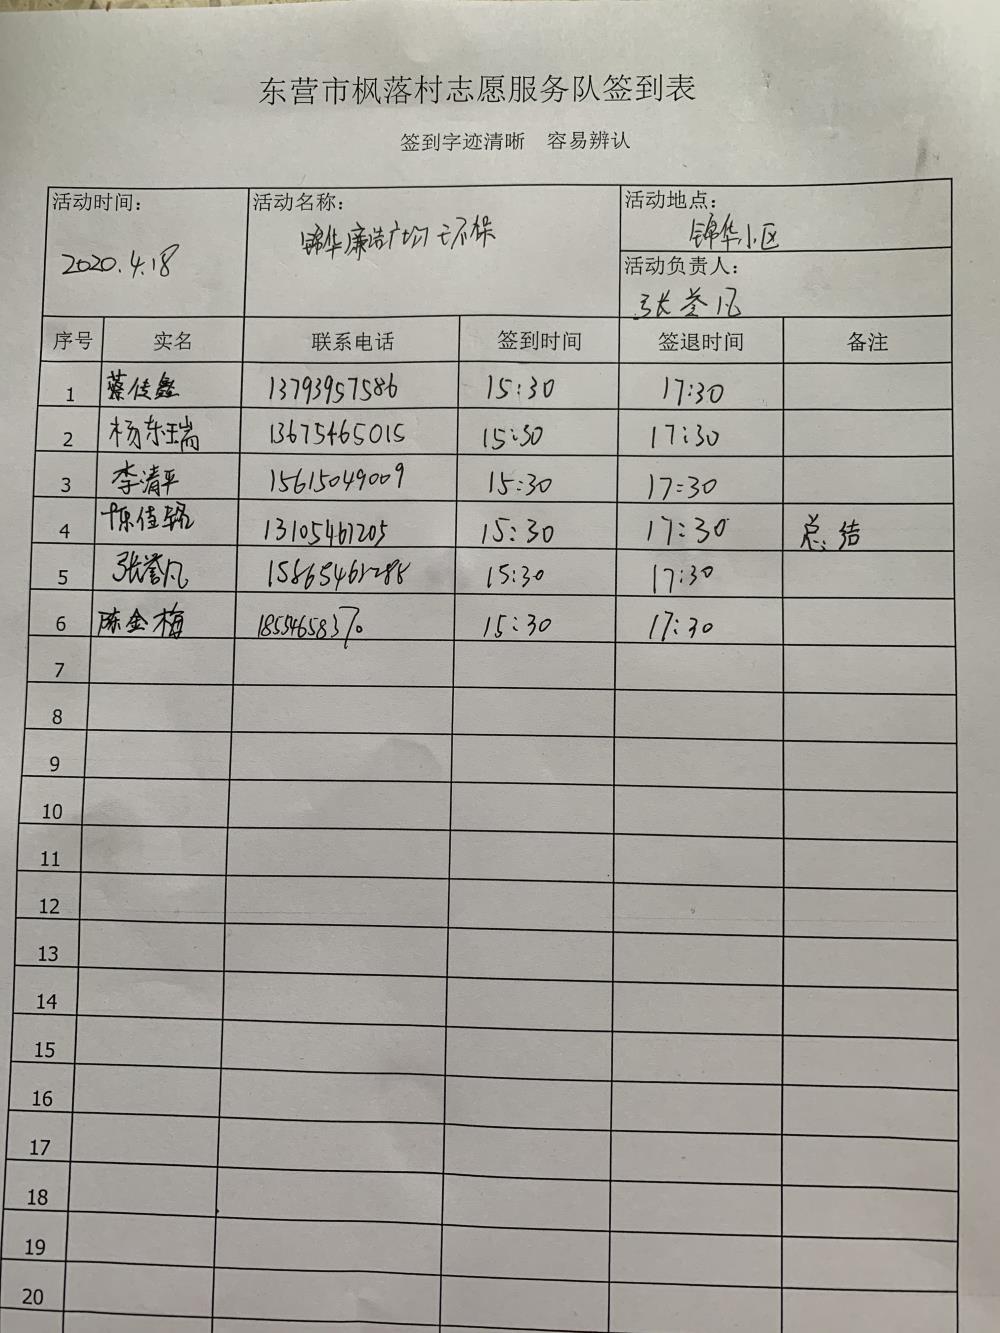 东营市枫落村志愿服务队签到表
签到字迹清晰 容易辨认
活动时间： 活动名称： 活动地点：
2020.4.18 锦华廉洁广场环保 锦华小区
活动负责人：
张誉凡
序号 实名 联系电话 签到时间 签退时间 备注
1 蔡佳鑫 13793957586 15:30 17:30
2 杨东瑞 13675465015 15:30 17:30
3 李清平 15615049009 15:30 17:30
4 陈佳 13105461205 15:30 17:30 总结
5 张誉凡 15:30 17:30
6 陈金梅 15:30 17:30
7
8
9
10
11
12
13
14
15
16
17
18
19
20